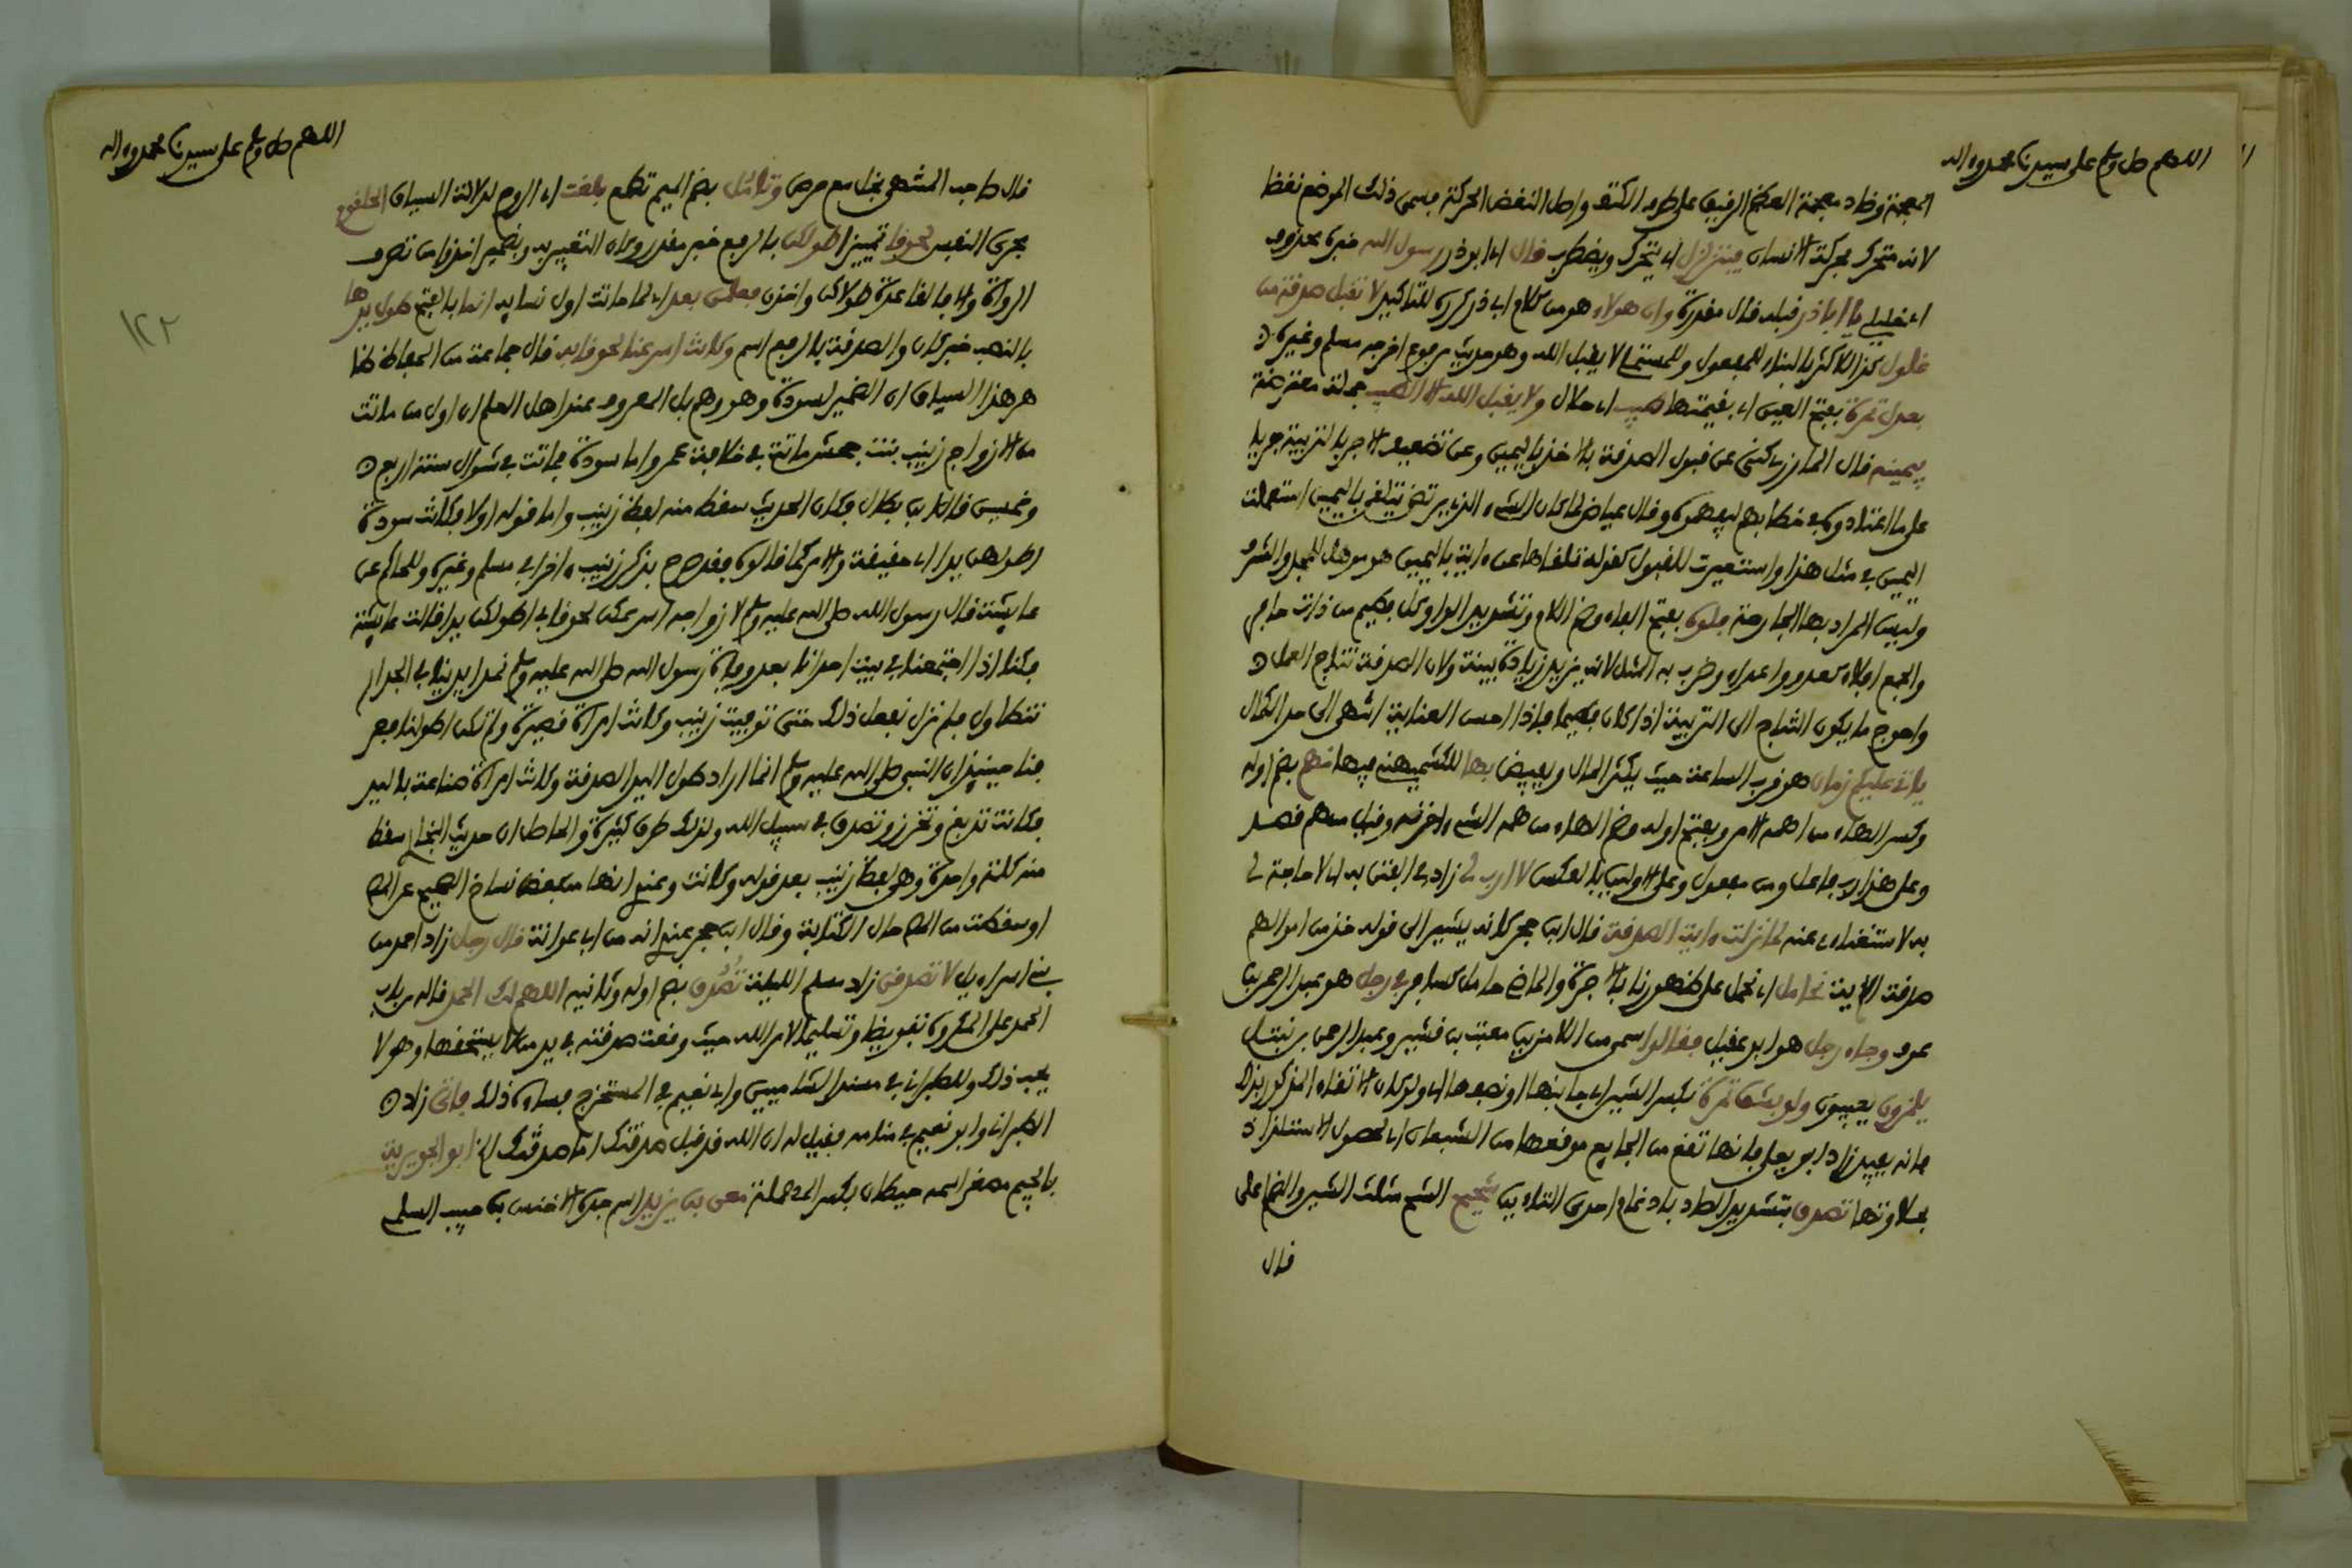 اللهم صل وسلم على سيدنا محمد وءاله
المعجمة وضاد معجمة العظم الرفيق على طرف الكتف واصل النغض الحركة فسمى ذلك الموضع نغضا
لانه متحرك بحركة الانسان يتزلزل اى يتحرك ويضطرب قال اى ابو ذر رسول الله خبر محذوف
اى خليلى يا ابا ذر قبله قال مقدرة وان هولاء هو من كلام ابى ذر كرره للتاكيد لا تقبل صدقة من
غلول كذا للاكثر بالبناء للمفعول وللمستملى لا يقبل الله وهو حديث مرفوع اخرجه مسلم وغيره
بعدل تمرة بفتح العين اى بقيمتها طيب اى حلال ولا يقبل الله الا الطيب جملة معترضة
بيمينه قال المازرى كنى عن قبول الصدقة بالاخذ باليمين وعن تضعيف الاجر بالتربية جريا
على ما اعتادوه فى خطابهم ليفهموه وقال عياض لما كان الشىء الذى يرتضى يتلقى باليمين استعملت
اليمين فى مثل هذا واستعيرت للقبول كقوله تلقاها عرابة باليمين هو موهل للمجد والشرف
وليس المراد بها الجارحة فلوه بفتح الفاء وضم اللام وتشديد الواو كل فطيم من ذات حافر
والجمع افلاء كعدو واعداء وضرب به المثل لانه يزيد زيادة بينة ولان الصدقة نتاج العمل
واحوج ما يكون النتاج الى التربية اذا كان فطيما فاذا احسن العناية انتهى الى حد الكمال
ياتى عليكم زمان هو قرب الساعة حيث يكثر المال ويفيض بها للكشميهنى فيها يهم بضم اوله
وكسر الهاء من اهمه الامر وبفتح اوله وضم الهاء من همه الشىء احزنه وقيل من هم قصد
وعلى هذا رب فاعل ومن مفعول وعلى الاولين بالعكس لا ارب لى زاد فى الفتن به اى لا حاجة لى
به لاستغناءى عنه لما نزلت ءاية الصدقة قال ابن حجر كانه يشير الى قوله خذ من اموالهم
صدقة الاية نحامل اى نحمل على ظهورنا بالاجرة والماضى حامل كسافر فجاء رجل هو عبد الرحمن بن
عوف وجاء رجل هو ابو عقيل فقالوا سمى من اللامزين معتب بن قشير وعبد الرحمن بن نبتل
يلمزون يعيبون ولو بشق تمرة بكسر الشين اى جانبها او نصفها اى ولو كان الاتقاء المذكور بذلك
فانه يفيد زاد ابو يعلى فانها تقع من الجايع موقعها من الشبعان اى لحصول الاستلذاذ
بحلاوتها تصدق بتشديد الصاد بادغام احدى التاءين شحيح الشح مثلث الشين والضم اعلى
قال
اللهم صل وسلم على سيدنا محمد وءاله
١٢٢
قال صاحب المنتهى بخل مع حرص وتامل بضم الميم تطمع بلغت اى الروح لدلالة السياق الحلقوم
مجرى النفس لحوقا تمييز اطولكن بالرفع خبر مقدر وكان التقييد به وبضمير اخذوا من تصرف
الرواة والا فالقاعدة طولاكن واخذن فعلمن بعد اى لما ماتت اول نسايه انما بالفتح طول يدها
بالنصب خبر كان والصدقة بالرفع اسم وكانت اسرعنا لحوقا به قال جماعة من الحفاظ ظا
هر هذا السياق ان الضمير لسودة وهو وهم بل المعروف عند اهل العلم ان اول من ماتت
من الازواج زينب بنت جحش ماتت فى خلافة عمر واما سودة فماتت فى شوال سنة اربع
وخمسين قال ابن بطال فكان الحديث سقط منه لفظ زينب واما قوله اولا فكانت سودة
اطولهن يدا اى حقيقة والامر كما قالوه فقد صرح بذكر زينب ءاخرا فى مسلم وغيره وللحاكم عن
عايشة قال رسول الله صلى الله عليه وسلم لازواجه اسرعكن لحوقا بى اطولكن يدا قالت عايشة
فكنا اذا اجتمعنا فى بيت احدانا بعد وفاة رسول الله صلى الله عليه وسلم نمد ايدينا فى الجدار
نتطاول فلم نزل نفعل ذلك حتى توفيت زينب وكانت امراة قصيرة ولم تكن اطولنا فعر
فنا حينيذ ان النبى صلى الله عليه وسلم انما اراد طول اليد الصدقة وكانت امراة صناعة باليد
فكانت تدبغ وتخرز وتصدق فى سبيل الله ولذلك طرق كثيرة والحاصل ان حديث البخارى سقط
منه كلمة واحدة وهى لفظ زينب بعد قوله وكانت وعندى انها من بعض نساخ الصحيح
او سقطت من المص حال الكتابة وقال ابن حجر عندى انه من ابى عوانة قال رجل زاد احمد من
بنى اسراءيل لا تصدقن زاد مسلم الليلة تُصُدِّق بضم اوله وثانيه اللهم لك الحمد قاله من باب
الحمد على المكروه تفويضا وتسليما لامر الله حيث وقعت صدقته فى يد من لا يستحقها وهو لا
يحب ذلك وللطبرانى فى مسند الشاميين وابى نعيم فى المستخرج فساءه ذلك فاتى زاد
الطبرانى وابو نعيم فى منامه فقيل له ان الله قد قبل صدقتك اما صدقتك الخ ابو الجويرية
بالجيم مصغر اسمه حيطان بكسر المهملة معن بن يزيد اسم جده الاخنس بن حبيب السلمى